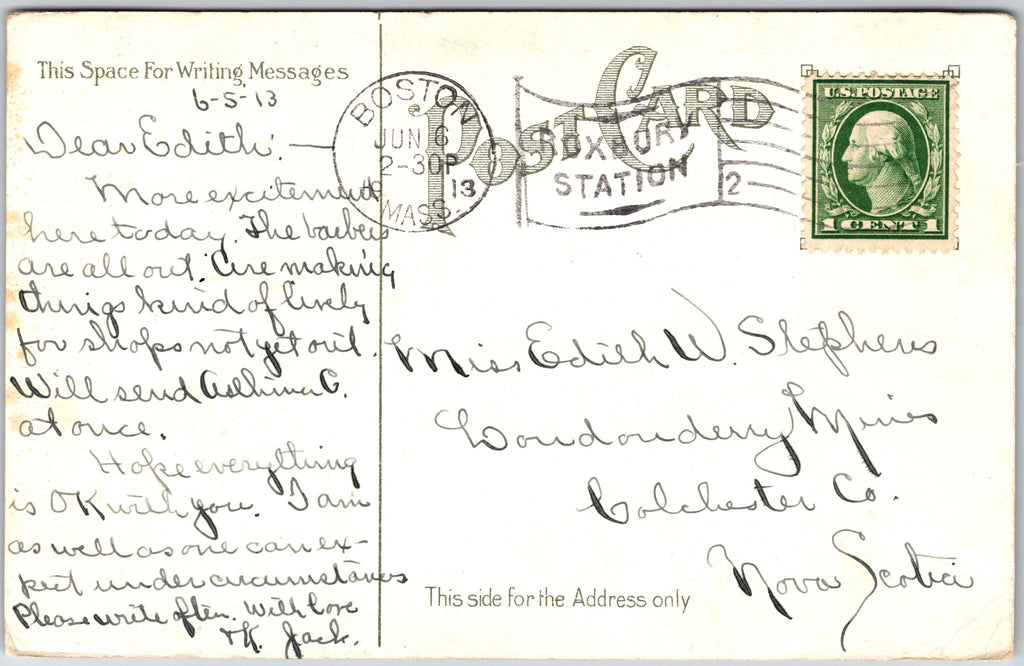 This Space For Writing Messages
6-5-13
Dear Edith: —
More excitement
here today. The barbers
are all out. Are making
things kind of lively
for shops not yet out.
Will send Asthma C.
at once.
Hope everything
is OK with you. I am
as well as one can ex-
pect under circumstances
Please write often. With love
+ K. Jack.
POST CARD
BOSTON
JUN 6
2-30P
13
MASS.
ROXBURY
STATION
2
U.S. POSTAGE
1 CENT 1
Miss Edith W. Stephens
Londonderry Mines
Colchester Co.
Nova Scotia
This side for the Address only